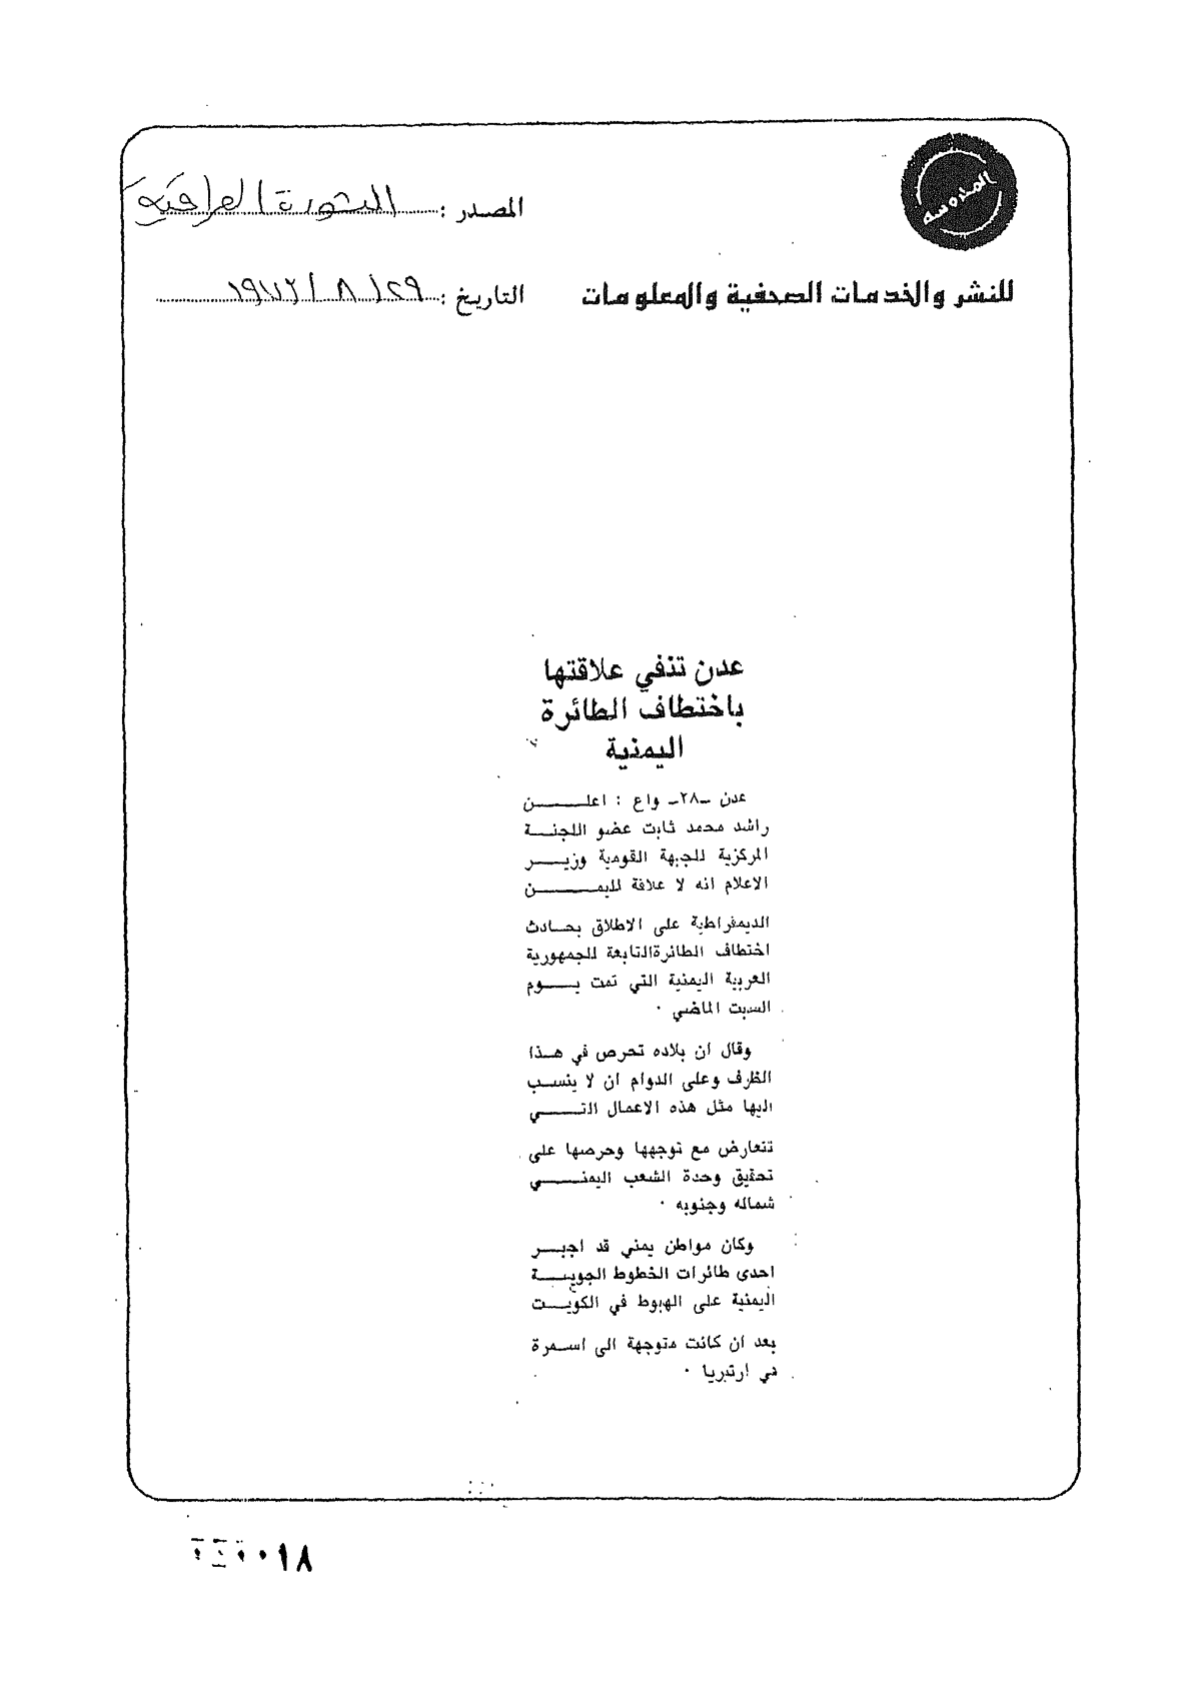 المحروسة
المصدر : الثورة العراقية
للنشر والخدمات الصحفية والمعلومات
التاريخ : ٢٩ / ٨ /
عدن تنفي علاقتها
باختطاف الطائرة
اليمنية
عدن ــ٢٨ــ واع : اعلن
راشد محمد ثابت عضو اللجنة
المركزية للجبهة القومية وزير
الاعلام انه لا علاقة لليمن
الديمقراطية على الاطلاق بحادث
اختطاف الطائرة التابعة للجمهورية
العربية اليمنية التي تمت يوم
السبت الماضي ٠
وقال ان بلاده تحرص في هذا
الظرف وعلى الدوام ان لا ينسب
اليها مثل هذه الاعمال التي
تتعارض مع توجهها وحرصها على
تحقيق وحدة الشعب اليمني
شماله وجنوبه ٠
وكان مواطن يمني قد اجبر
احدى طائرات الخطوط الجوية
اليمنية على الهبوط في الكويت
بعد ان كانت متوجهة الى اسمرة
في ارتيريا ٠